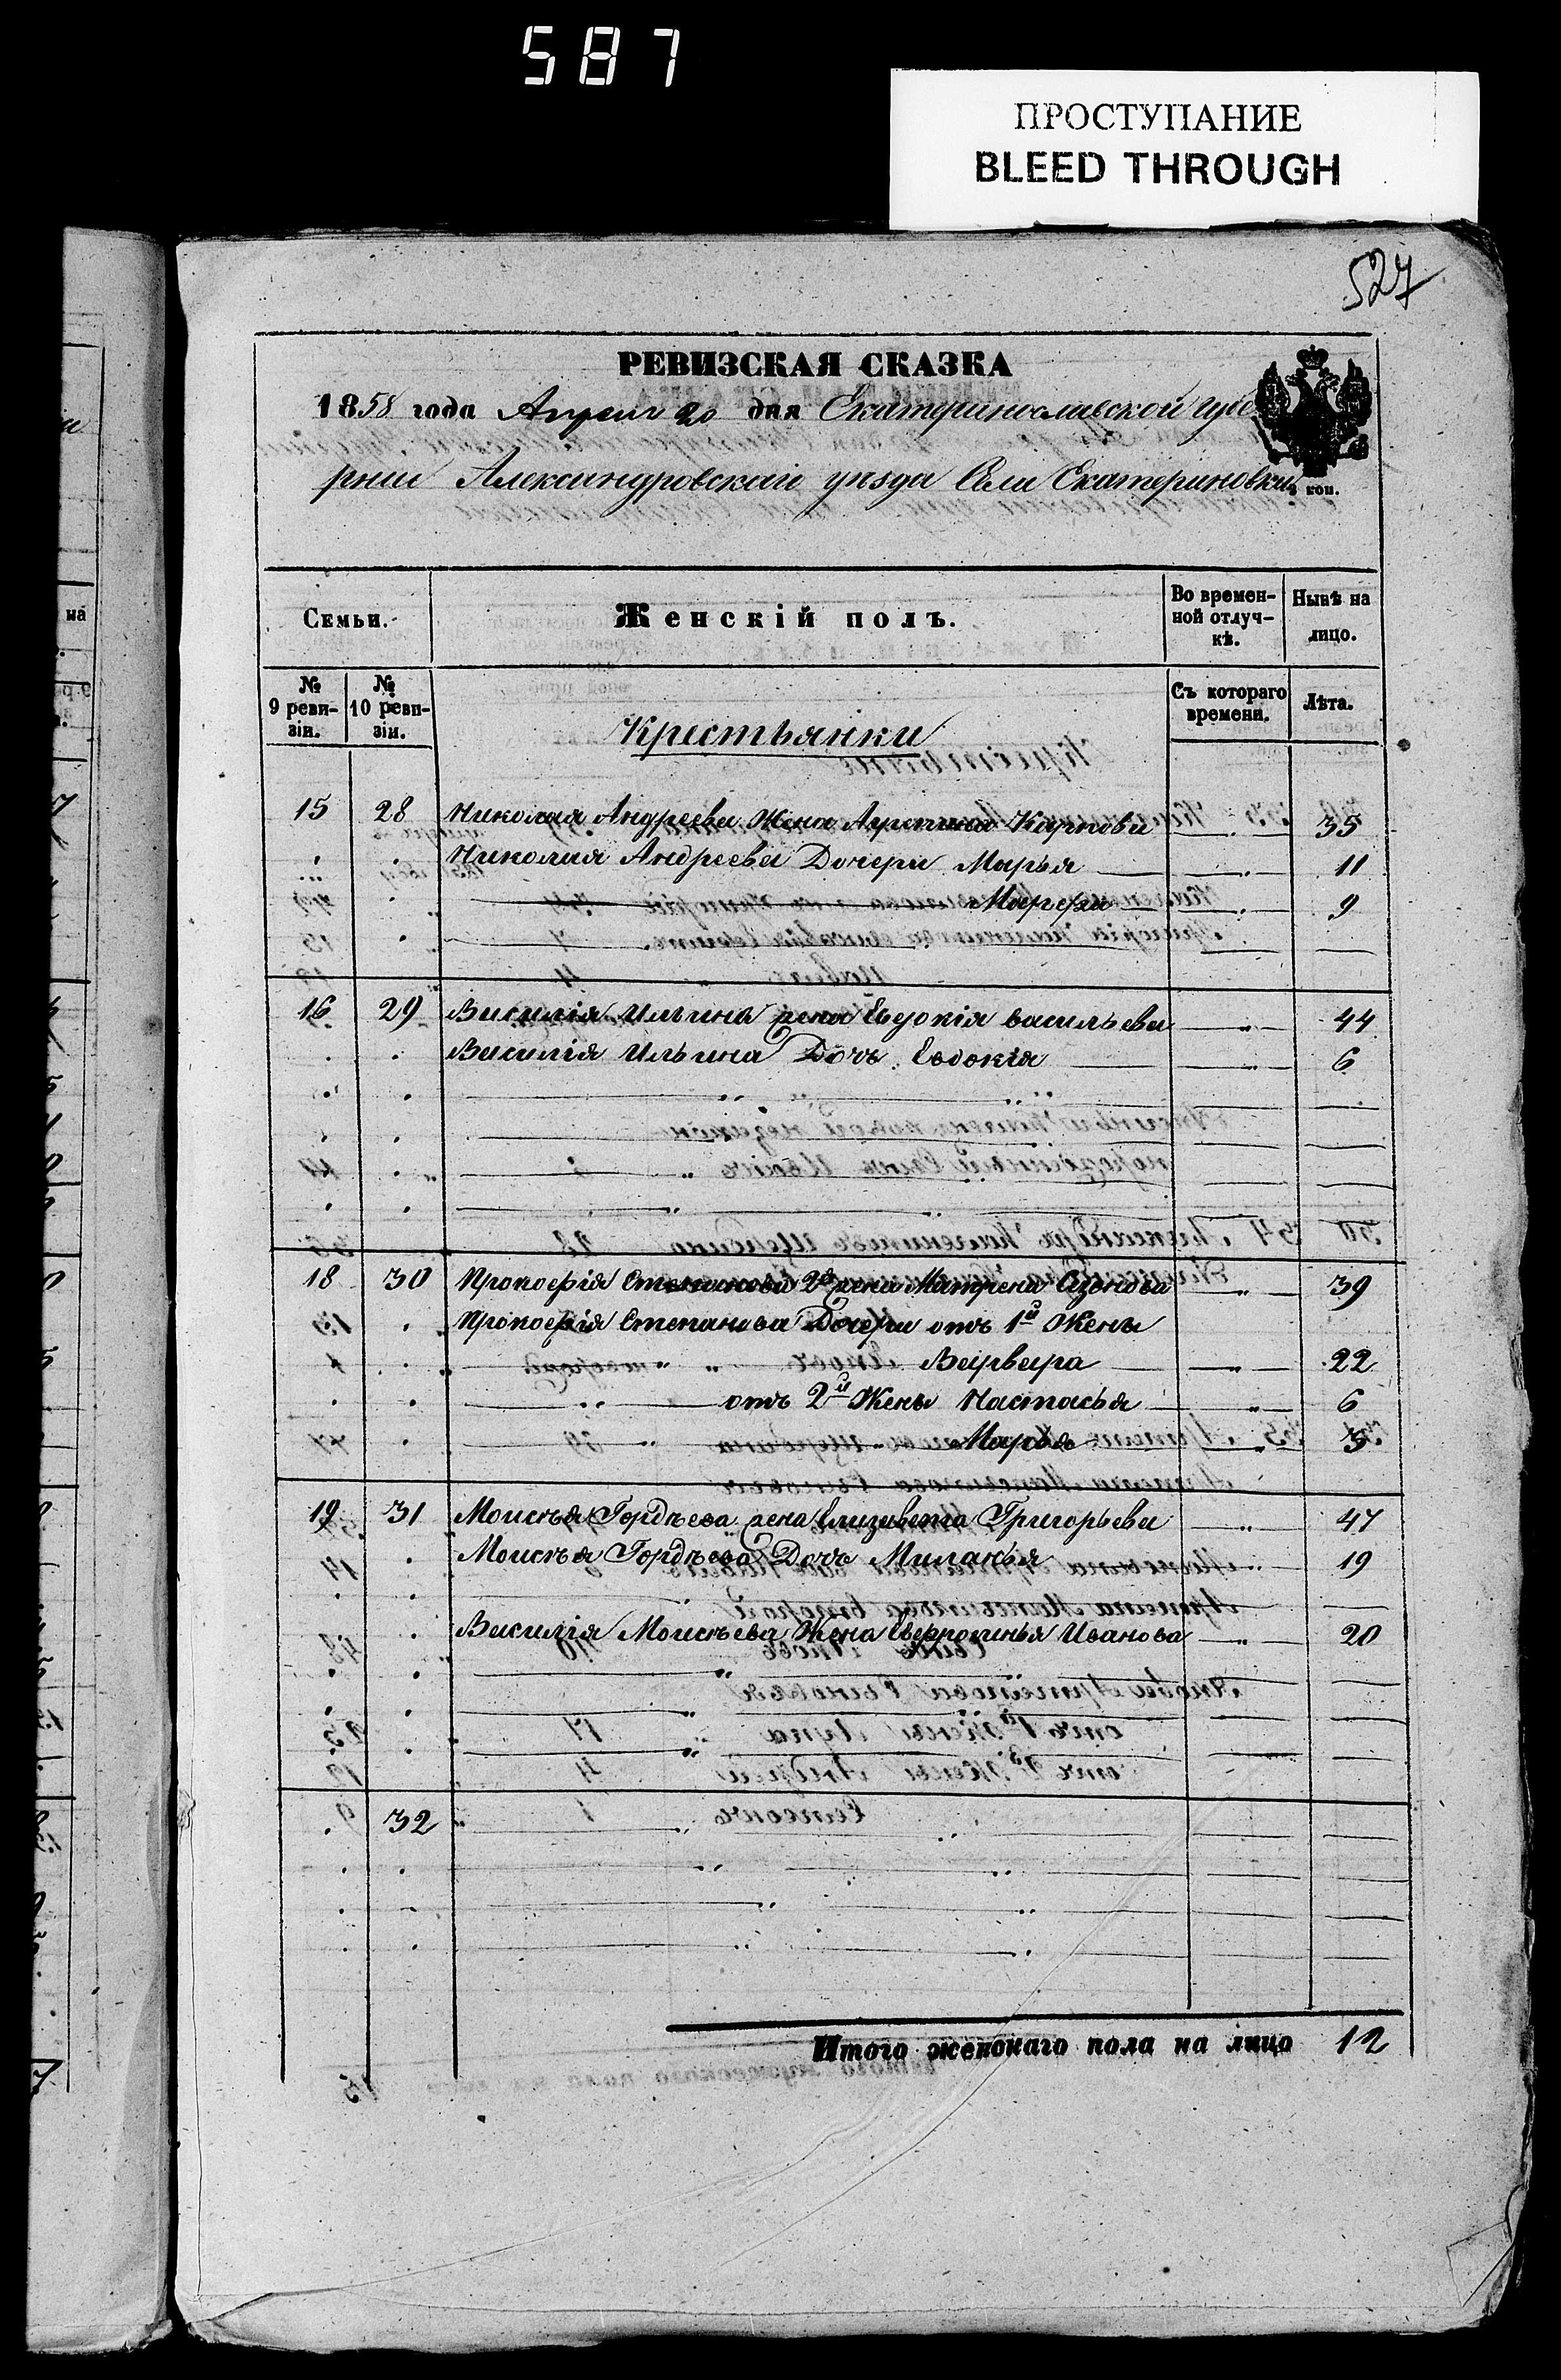 587
ПРОСТУПАНИЕ
BLEED THROUGH
527
РЕВИЗСКАЯ СКАЗКА
1858 года Апреля 20 дня Екатеринославской губе
рнии Александровскаго уѣзда Села Екатериновки
коп.
Семьи.
Женскій полъ.
Во времен-
ной отлуч-
кѣ.
Нынѣ на
лицо.
№
9 реви-
зіи.
№
10 реви-
зіи.
Крестьянки
Съ котораго
времени.
Лѣта.
15 28 Николая Андреева Жена Карпова 35
Николая Андреева Дочери Марья 11
Марфа 9
16 29 Василія Ильина жена Евдокія васильева 44
Василія Ильина Дочь Евдокія 6
18 30 Прокофія Степанова 2я жена Матрена 39
Прокофія Степанова Дочери отъ 1й Жены
Варвара 22
отъ 2й Жены Настасья 6
Марья 3
19 31 Моисѣя Гордѣева жена Елизавета Григорьева 47
Моисѣя Гордѣева Дочь Миланья 19
Василія Моисѣева Жена Евфросинья Иванова 20
32
Итого женскаго пола на лицо 12